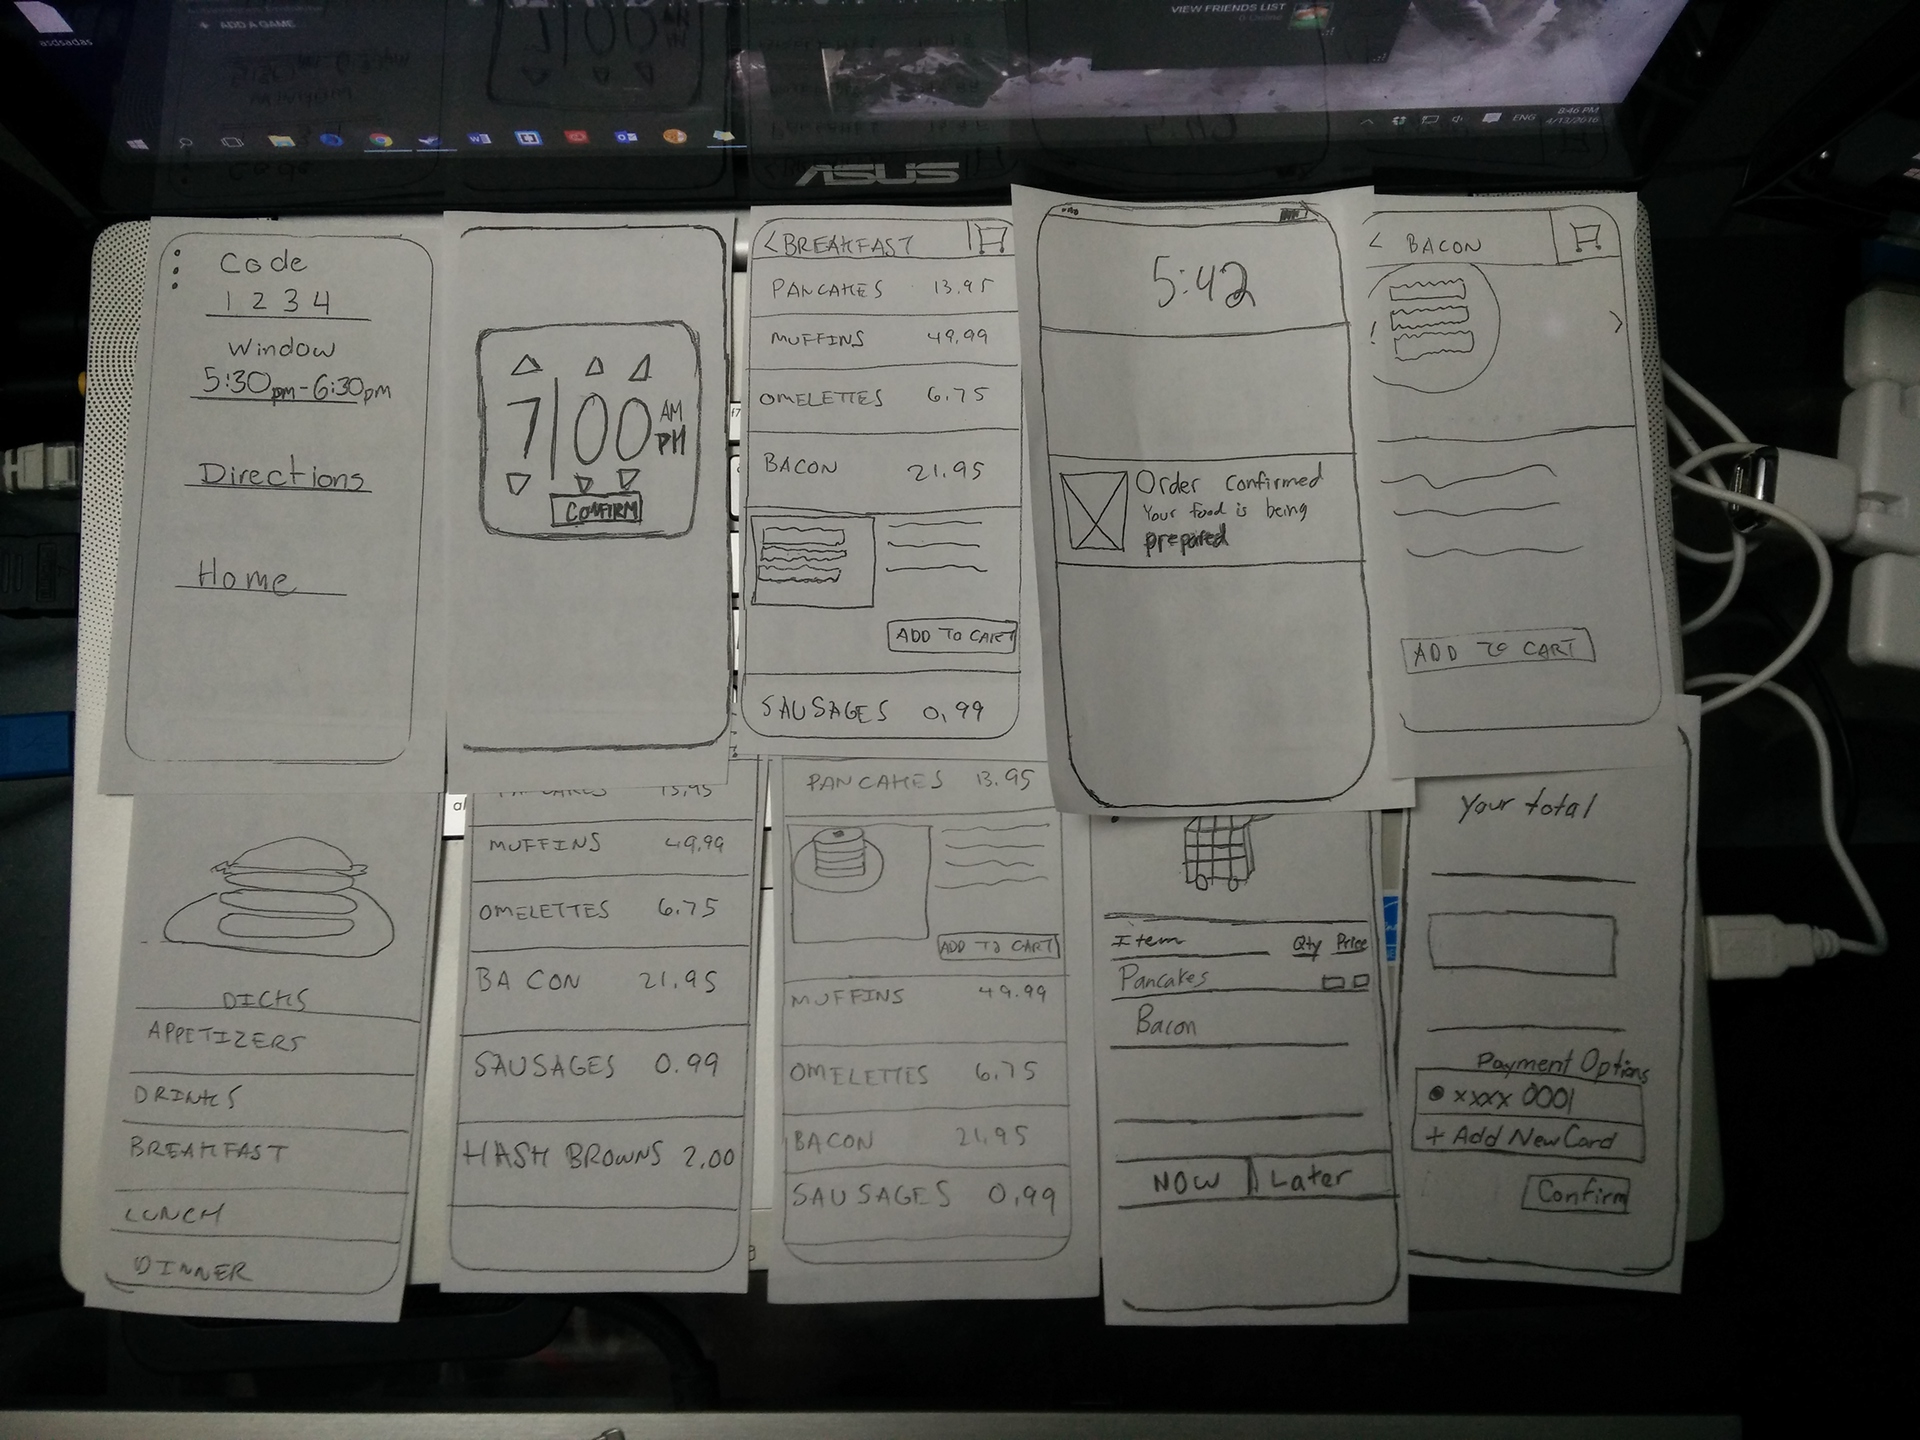 asdsadas
+ ADD A GAME
VIEW FRIENDS LIST
0 Online
ENG
8:46 PM
4/13/2016
ASUS
Code
1234
Window
5:30pm-6:30pm
Directions
Home
7|00
AM
PM
CONFIRM
<BREAKFAST
PANCAKES 13.95
MUFFINS 49.99
OMELETTES 6.75
BACON 21.95
ADD TO CART
SAUSAGES 0.99
5:42
Order Confirmed
Your food is being
prepared
< BACON
ADD TO CART
DICKS
APPETIZERS
DRINKS
BREAKFAST
LUNCH
DINNER
PANCAKES 13.95
MUFFINS 49.99
OMELETTES 6.75
BACON 21.95
SAUSAGES 0.99
HASH BROWNS 2.00
PANCAKES 13.95
ADD TO CART
MUFFINS 49.99
OMELETTES 6.75
BACON 21.95
SAUSAGES 0.99
Item Qty Price
Pancakes
Bacon
NOW Later
Your total
Payment Options
xxxx 0001
+ Add New Card
Confirm